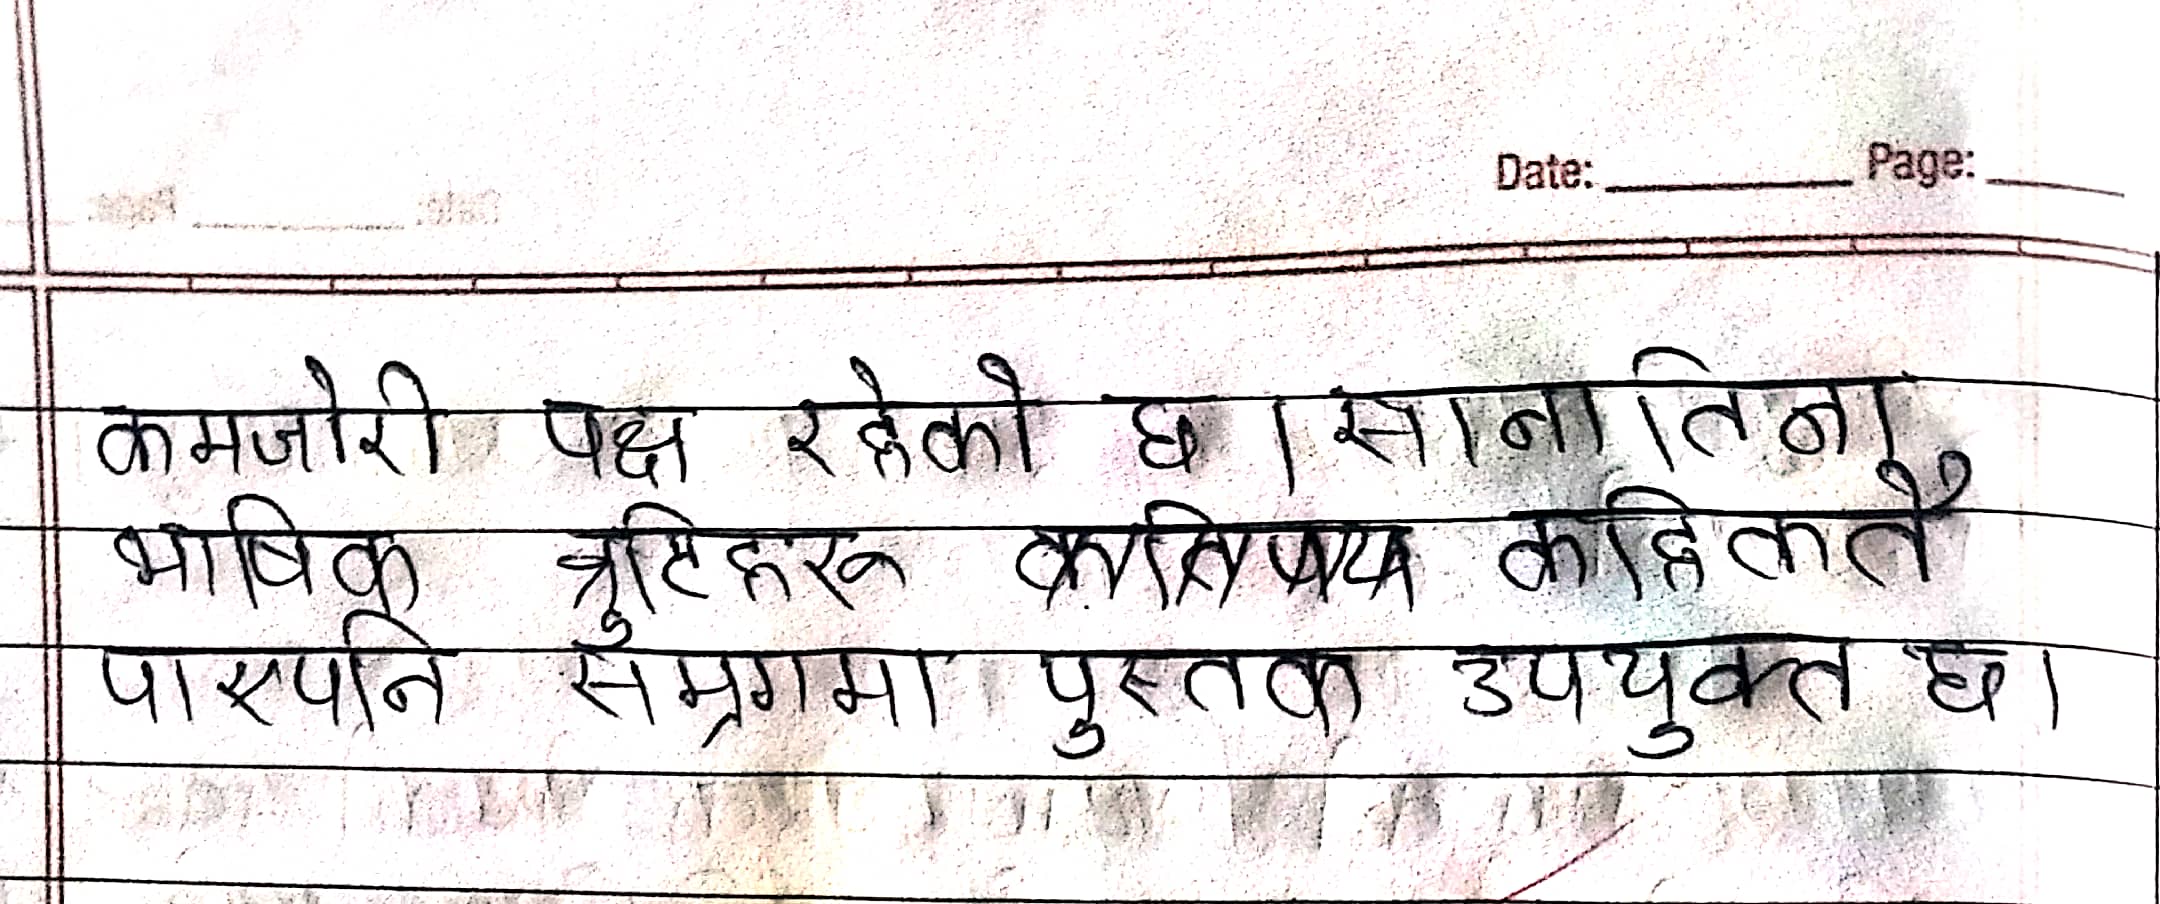 Date: Page:
कमजोरी पक्ष रहेको छ । सानातिना
भाषिक त्रुटिहरू कतिपय कहिकतै
पाएपनि समग्रमा पुस्तक उपयुक्त छ।